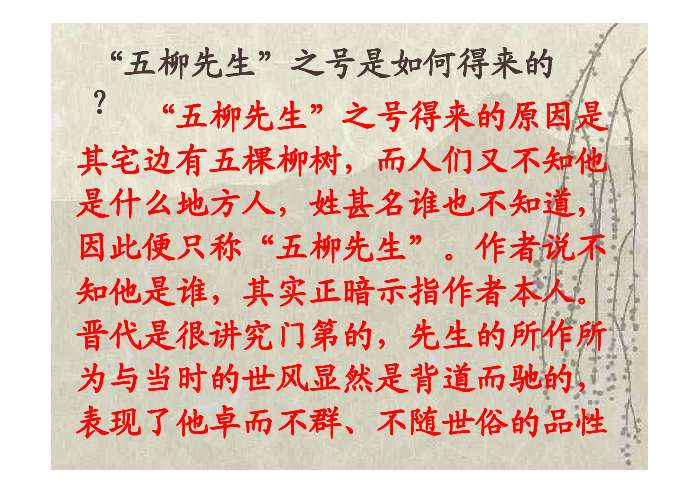 “五柳先生”之号是如何得来的
？
“五柳先生”之号得来的原因是
其宅边有五棵柳树，而人们又不知他
是什么地方人，姓甚名谁也不知道，
因此便只称“五柳先生”。作者说不
知他是谁，其实正暗示指作者本人。
晋代是很讲究门第的，先生的所作所
为与当时的世风显然是背道而驰的，
表现了他卓而不群、不随世俗的品性